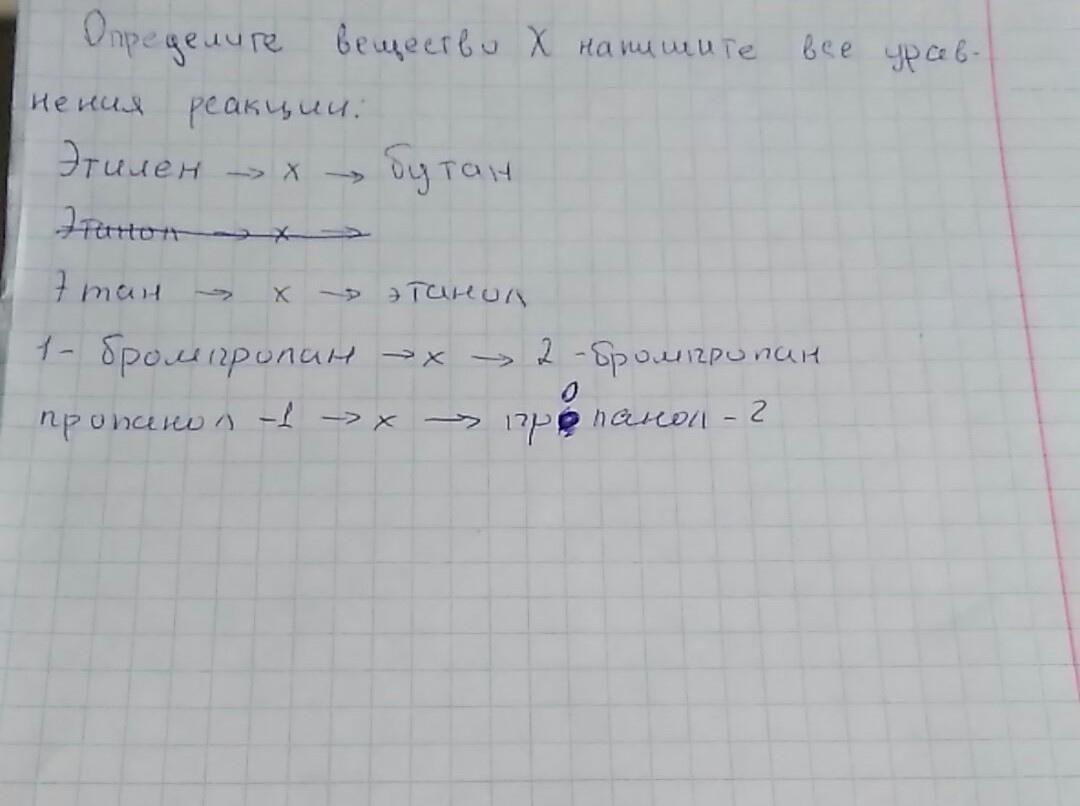 Определите вещество X напишите все урав-
нения реакции:
Этилен → x → бутан
Этанол → x →
Этан → x → этанол
1- бромпропан → x → 2 -бромпропан
пропанол -1 → x → пропанол - 2